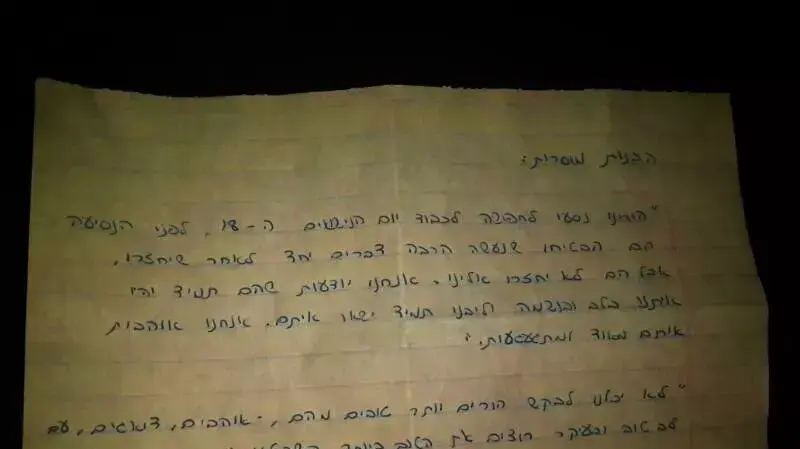 הבנות מוסרות:
"הורינו נסעו לחופשה לכבוד יום הנישואים ה-18, לפני הנסיעה
הם הבטיחו שנעשה הרבה דברים יחד לאחר שיחזרו,
אבל הם לא יחזרו אלינו. אנחנו יודעות שהם תמיד יהיו
איתנו בלב ובנשמה וליבנו תמיד ישאר איתם. אנחנו אוהבות
אותם מאוד ומתגעגעות."
"לא יכלנו לבקש הורים יותר טובים מהם, - אוהבים, דואגים, עם
לב טוב ובעיקר רוצים את הטוב ביותר